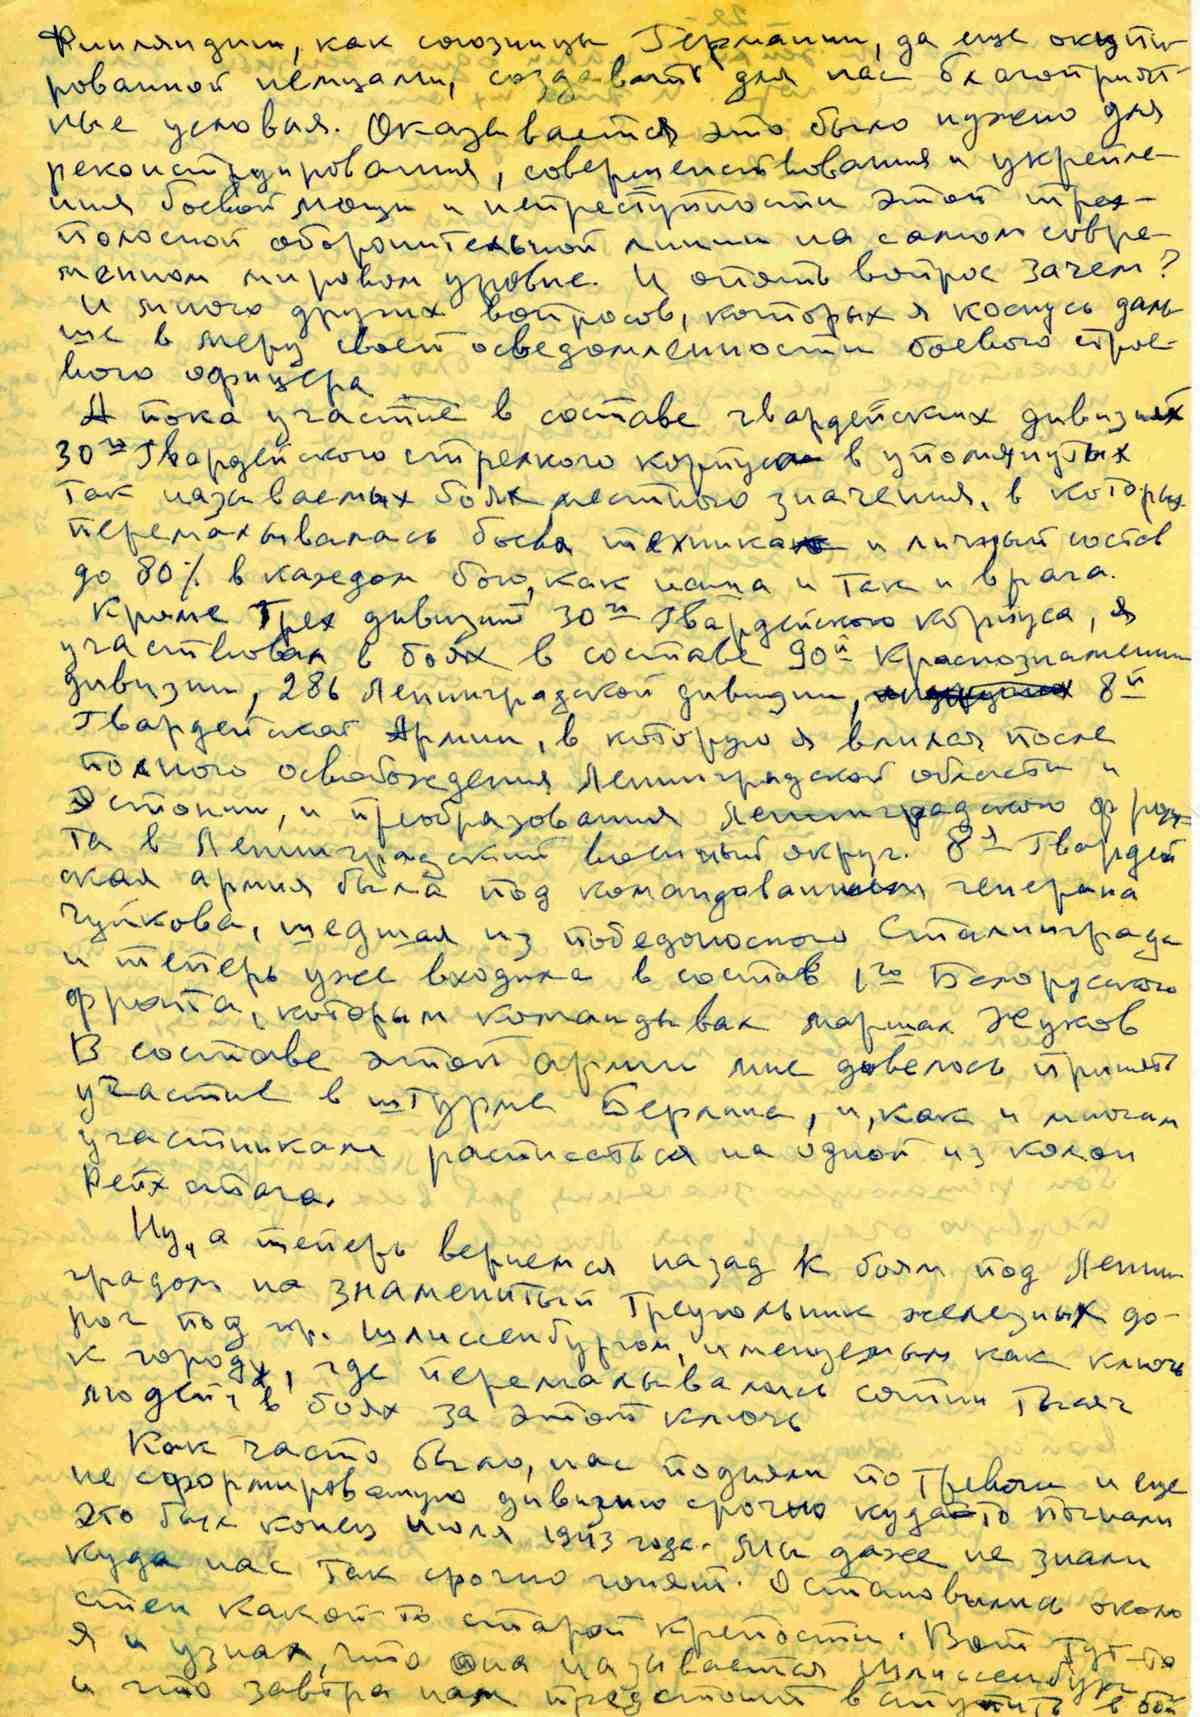 Финляндии, как союзницы Германии, да еще оккупи-
рованной немцами, создавать для нас благоприят-
ные условия. Оказывается это было нужно для
реконструирования, совершенствования и укрепле-
ния боевой мощи и неприступности этой трех-
полосной оборонительной линии на самом совре-
менном мировом уровне. И опять вопрос зачем?
И много других вопросов, которых я коснусь даль-
ше в меру своей осведомленности боевого строе-
вого офицера
А пока участие в составе гвардейских дивизиях
30го Гвардейского стрелкого корпуса в упомянутых
так называемых боях местного значения, в которых
перемалывалась боева техника и личный состав
до 80% в каждом бою, как наша и так и врага.
Кроме трех дивизий 30го Гвардейского корпуса, я
участвовал в боях в составе 90й Краснознаменной
дивизии, 286 Ленинградской дивизии, 8й
Гвардейской Армии, в которую я влился после
полного освобождения Ленинградской области и
Эстонии, и преобразования Ленинградского фрон-
та в Ленинградский военный округ. 8я Гвардей
ская армия была под командованием генерала
Чуйкова, шедшая из победоносного Сталинграда
и теперь уже входила в состав 1го Белорусского
фронта, которым командывал маршал Жуков
В составе этой армии мне довелось принять
участие в штурме Берлина, и, как и многим
участникам расписаться на одной из колон
Рейхстага.
Ну, а теперь вернемся назад к боям под Ленин
градом на знаменитый треугольник железных до-
рог под гор. Шлиссенбургом, именуемым как ключ
к городу, где перемалывались сотни тысяч
людей в боях за этот ключь
Как часто было, нас подняли по тревоги и еще
не сформированую дивизию срочно куда-то погнали
Это был конец июля 1943 года. Мы даже не знали
куда нас так срочно гонят. Остановились около
стен какой то старой крепости. Вот тут-то
я и узнал, что она называется Шлиссенбург
и что завтра нам предстоит вступить в бой